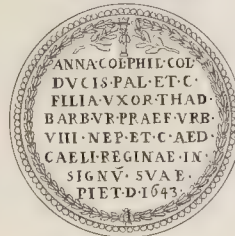 ANNA·COL·PHIL·COL·
DVCIS·PAL·ET·C·
FILIA·VXOR·THAD·
BARB·VR·PRAEF·VRB·
VIII·NEP·ET·C·AED·
CAELI·REGINAE·IN·
SIGNV̄·SVAE·
PIET·D·1643·